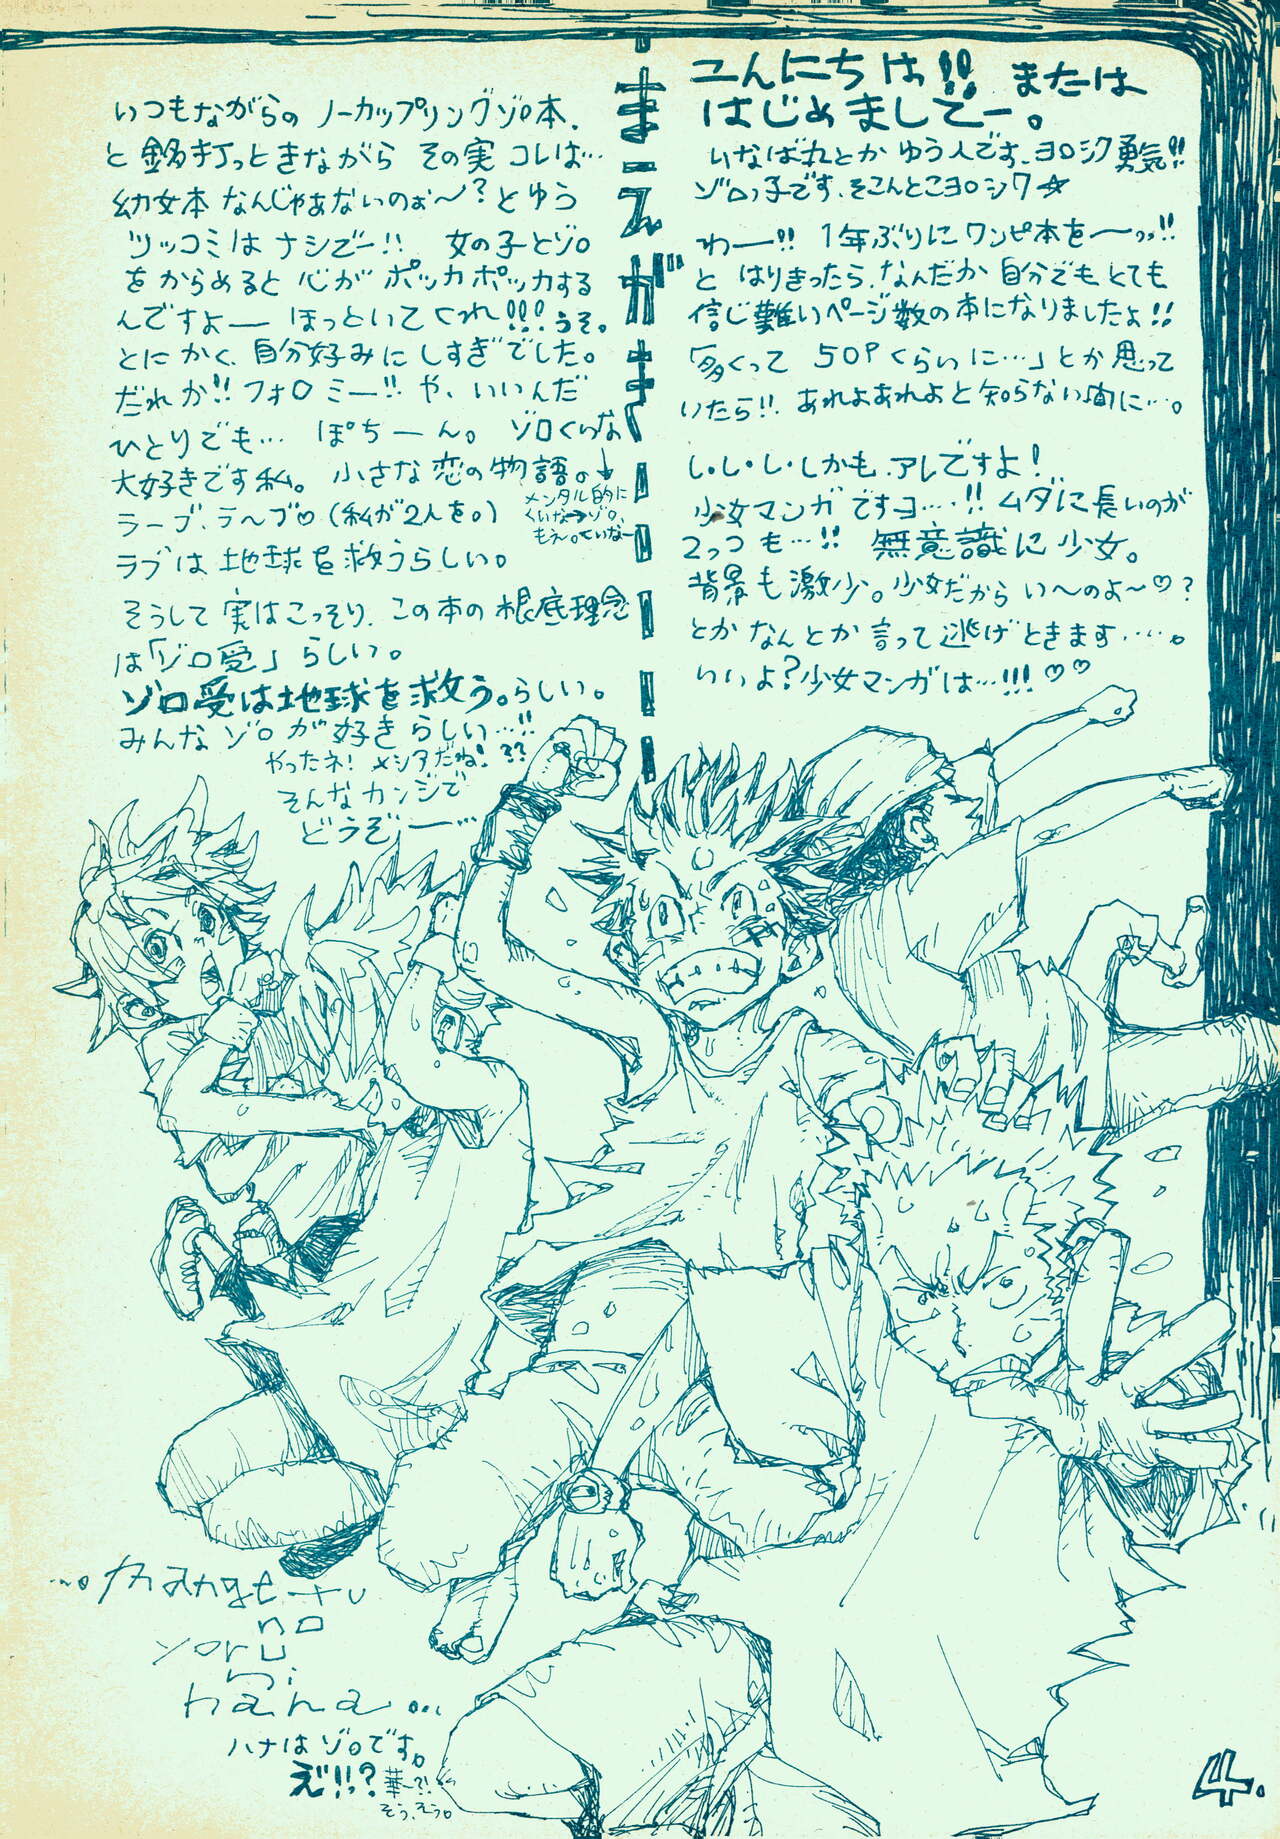 まえがき
こんにちは!! または
はじめましてー。
いなばれとかゆう人です、ヨロシク勇気!!
ゾロっ子です、そこんとこヨロシク☆
わー!! 1年ぶりにワンピ本を〜っっ!!
と はりきったら、なんだか自分でもとても
信じ難いページ数の本になりましたよ!!
「多くって 50Pくらいに…」とか思って
いたら!! あれよあれよと知らない間に…。
し・し・し・しかも、アレですよ!
少女マンガですヨ…!! ムダに長いのが
2っつも…!! 無意識に少女。
背景も激少。少女だから い〜のよ〜♡?
とかなんとか言って逃げときます……。
いいよ?少女マンガは…!!!♡♡
いつもながらの ノーカップリングゾロ本、
と銘打っときながら その実コレは…
幼女本なんじゃぁないのぉ〜?とゆう
ツッコミはナシでー!! 女の子とゾロ
をからめると心がポッカポッカする
んですよー ほっといてくれ!!! うそ。
とにかく、自分好みにしすぎでした。
だれか!!フォロミー!! や、いいんだ
ひとりでも… ぽちーん。 ゾロくいな
大好きです私。 小さな恋の物語。↓
メンタル的に
くいな→ゾロ。
もえ〜。くいなー
ラーブ、ラ〜ブ♡(私が2人を。)
ラブは地球を救うらしい。
そうして実はこっそり、この本の根底理念
は「ゾロ受」らしい。
ゾロ受は地球を救う。らしい。
みんなゾロが好きらしい…!!
やったネ! メシアだね!??
そんなカンジで
どうぞー…
...mangetu
no
yoru
ni
hana...
ハナはゾロです。
え"!!っ?
華〜?!
そう、そう。
4.